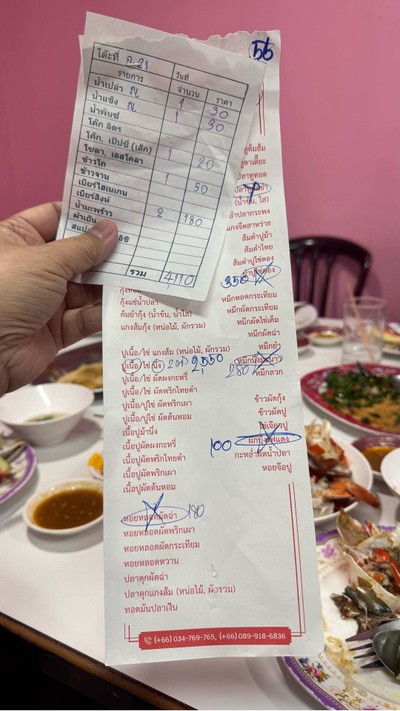 โต๊ะที่ ค.21
วันที่
รายการ
จำนวน
ราคา
น้ำเปล่า ญ 1 30
น้ำแข็ง ญ 1 30
น้ำพันช์
โค้ก ลิตร
โค้ก, เป๊ปซี่ (เล็ก) 1 20
โซดา, เอสโคลา
ข้าวโถ 1 50
ข้าวจาน
เบียร์ไฮเนเกน
เบียร์สิงห์ 2 180
น้ำมะพร้าว
ผ้าเย็น
รวม
56
กุ้งแช่น้ำปลา
ต้มยำกุ้ง (น้ำข้น, น้ำใส)
แกงส้มกุ้ง (หน่อไม้, ผักรวม)
ปูเนื้อ/ไข่ แกงส้ม (หน่อไม้, ผักรวม)
ปูเนื้อ/ไข่ นึ่ง 2550
ปูเนื้อ/ปูไข่ ผัดผงกะหรี่
ปูเนื้อ/ปูไข่ ผัดพริกไทยดำ
ปูเนื้อ/ปูไข่ ผัดพริกเผา
ปูเนื้อ/ปูไข่ ผัดต้นหอม
เนื้อปูม้านึ่ง
เนื้อปูผัดผงกะหรี่
เนื้อปูผัดพริกไทยดำ
เนื้อปูผัดพริกเผา
เนื้อปูผัดต้นหอม
หอยหลอดผัดฉ่า 180
หอยหลอดผัดพริกเผา
หอยหลอดผัดกระเทียม
หอยหลอดหวาน
ปลาดุกผัดฉ่า
ปลาดุกแกงส้ม (หน่อไม้, ผักรวม)
ทอดมันปลาเงิน
ปูต้มส้ม
ปลาทูทอด
(น้ำข้น, ใส)
ยำปลากระพง
แกงจืดสาหร่าย
ส้มตำปูม้า
ส้มตำไทย
ส้มตำปูไข่ดอง
350
หมึกทอดกระเทียม
หมึกผัดกระเทียม
หมึกผัดไข่เค็ม
หมึกผัดฉ่า
หมึกยำ
หมึกนึ่งมะนาว
280 หมึกลวก
ข้าวผัดกุ้ง
ข้าวผัดปู
ไข่เจียวปู
100 ผักบุ้งไฟแดง
กะหล่ำผัดน้ำปลา
หอยจ๊อปู
(+66) 034-769-765, (+66) 089-918-6836